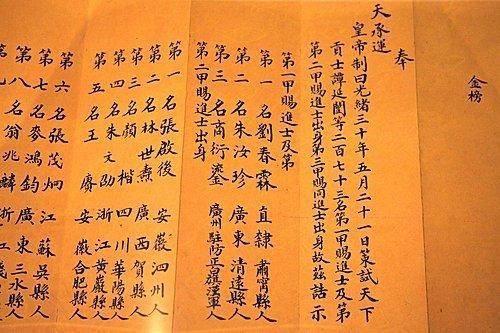 金榜
奉
天承運
皇帝制曰光緒三十年五月二十一日策試天下
貢士譚延闓等二百七十三名第一甲賜進士及第
第二甲賜進士出身第三甲賜同進士出身故茲誥示
第一甲賜進士及第
第一名劉春霖 直隸肅寧縣人
第二名朱汝珍 廣東清遠縣人
第三名商衍鎏 廣州駐防正白旗漢軍人
第二甲賜進士出身
第一名張啟後 安徽泗州人
第二名林世燾 廣西賀縣人
第三名顏楷 四川華陽縣人
第四名朱文劭 浙江黃巖縣人
第五名王賡 安徽合肥縣人
第六名張茂炯 江蘇吳縣人
第七名麥鴻鈞 廣東三水縣人
第八名翁兆麟